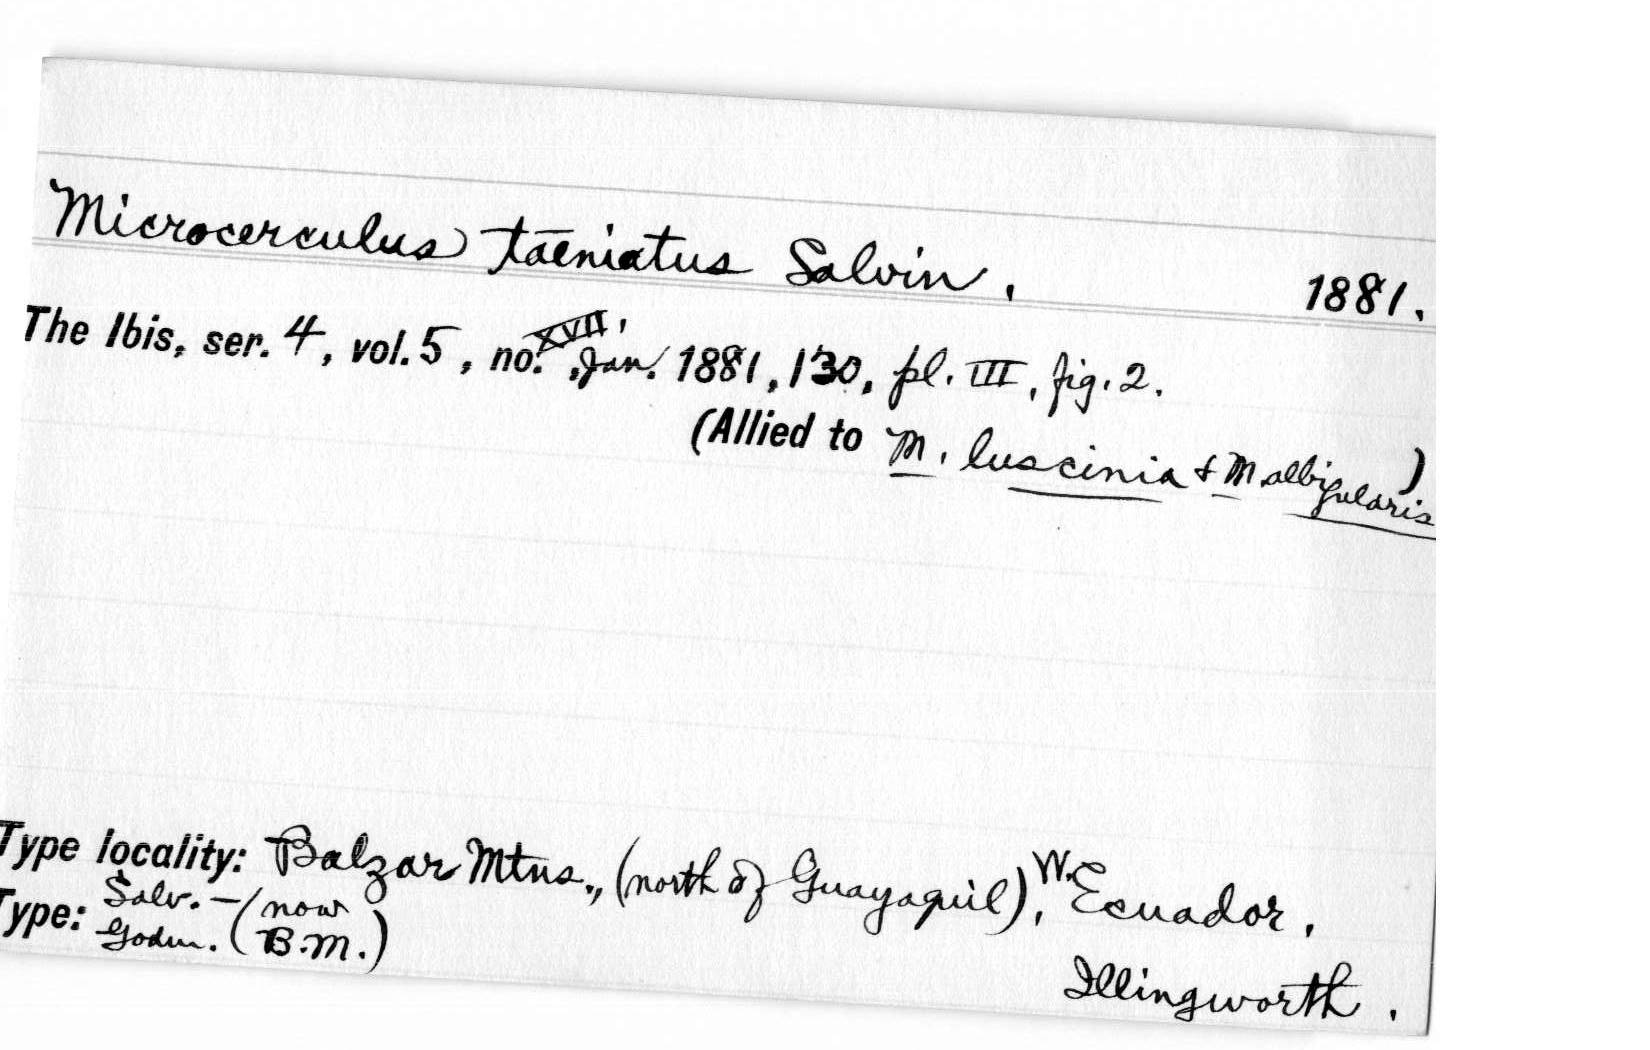 Microcerculus taeniatus Salvin. 1881.
The Ibis, ser. 4, vol. 5, no. XVII, Jan. 1881, 130, pl. III, fig. 2.
(Allied to M. luscinia & M. albigularis)
Type locality: Balzar Mtns., (north of Guayaquil), W. Ecuador.
Type: Salv. - Godm. (now B.M.)
Illingworth.